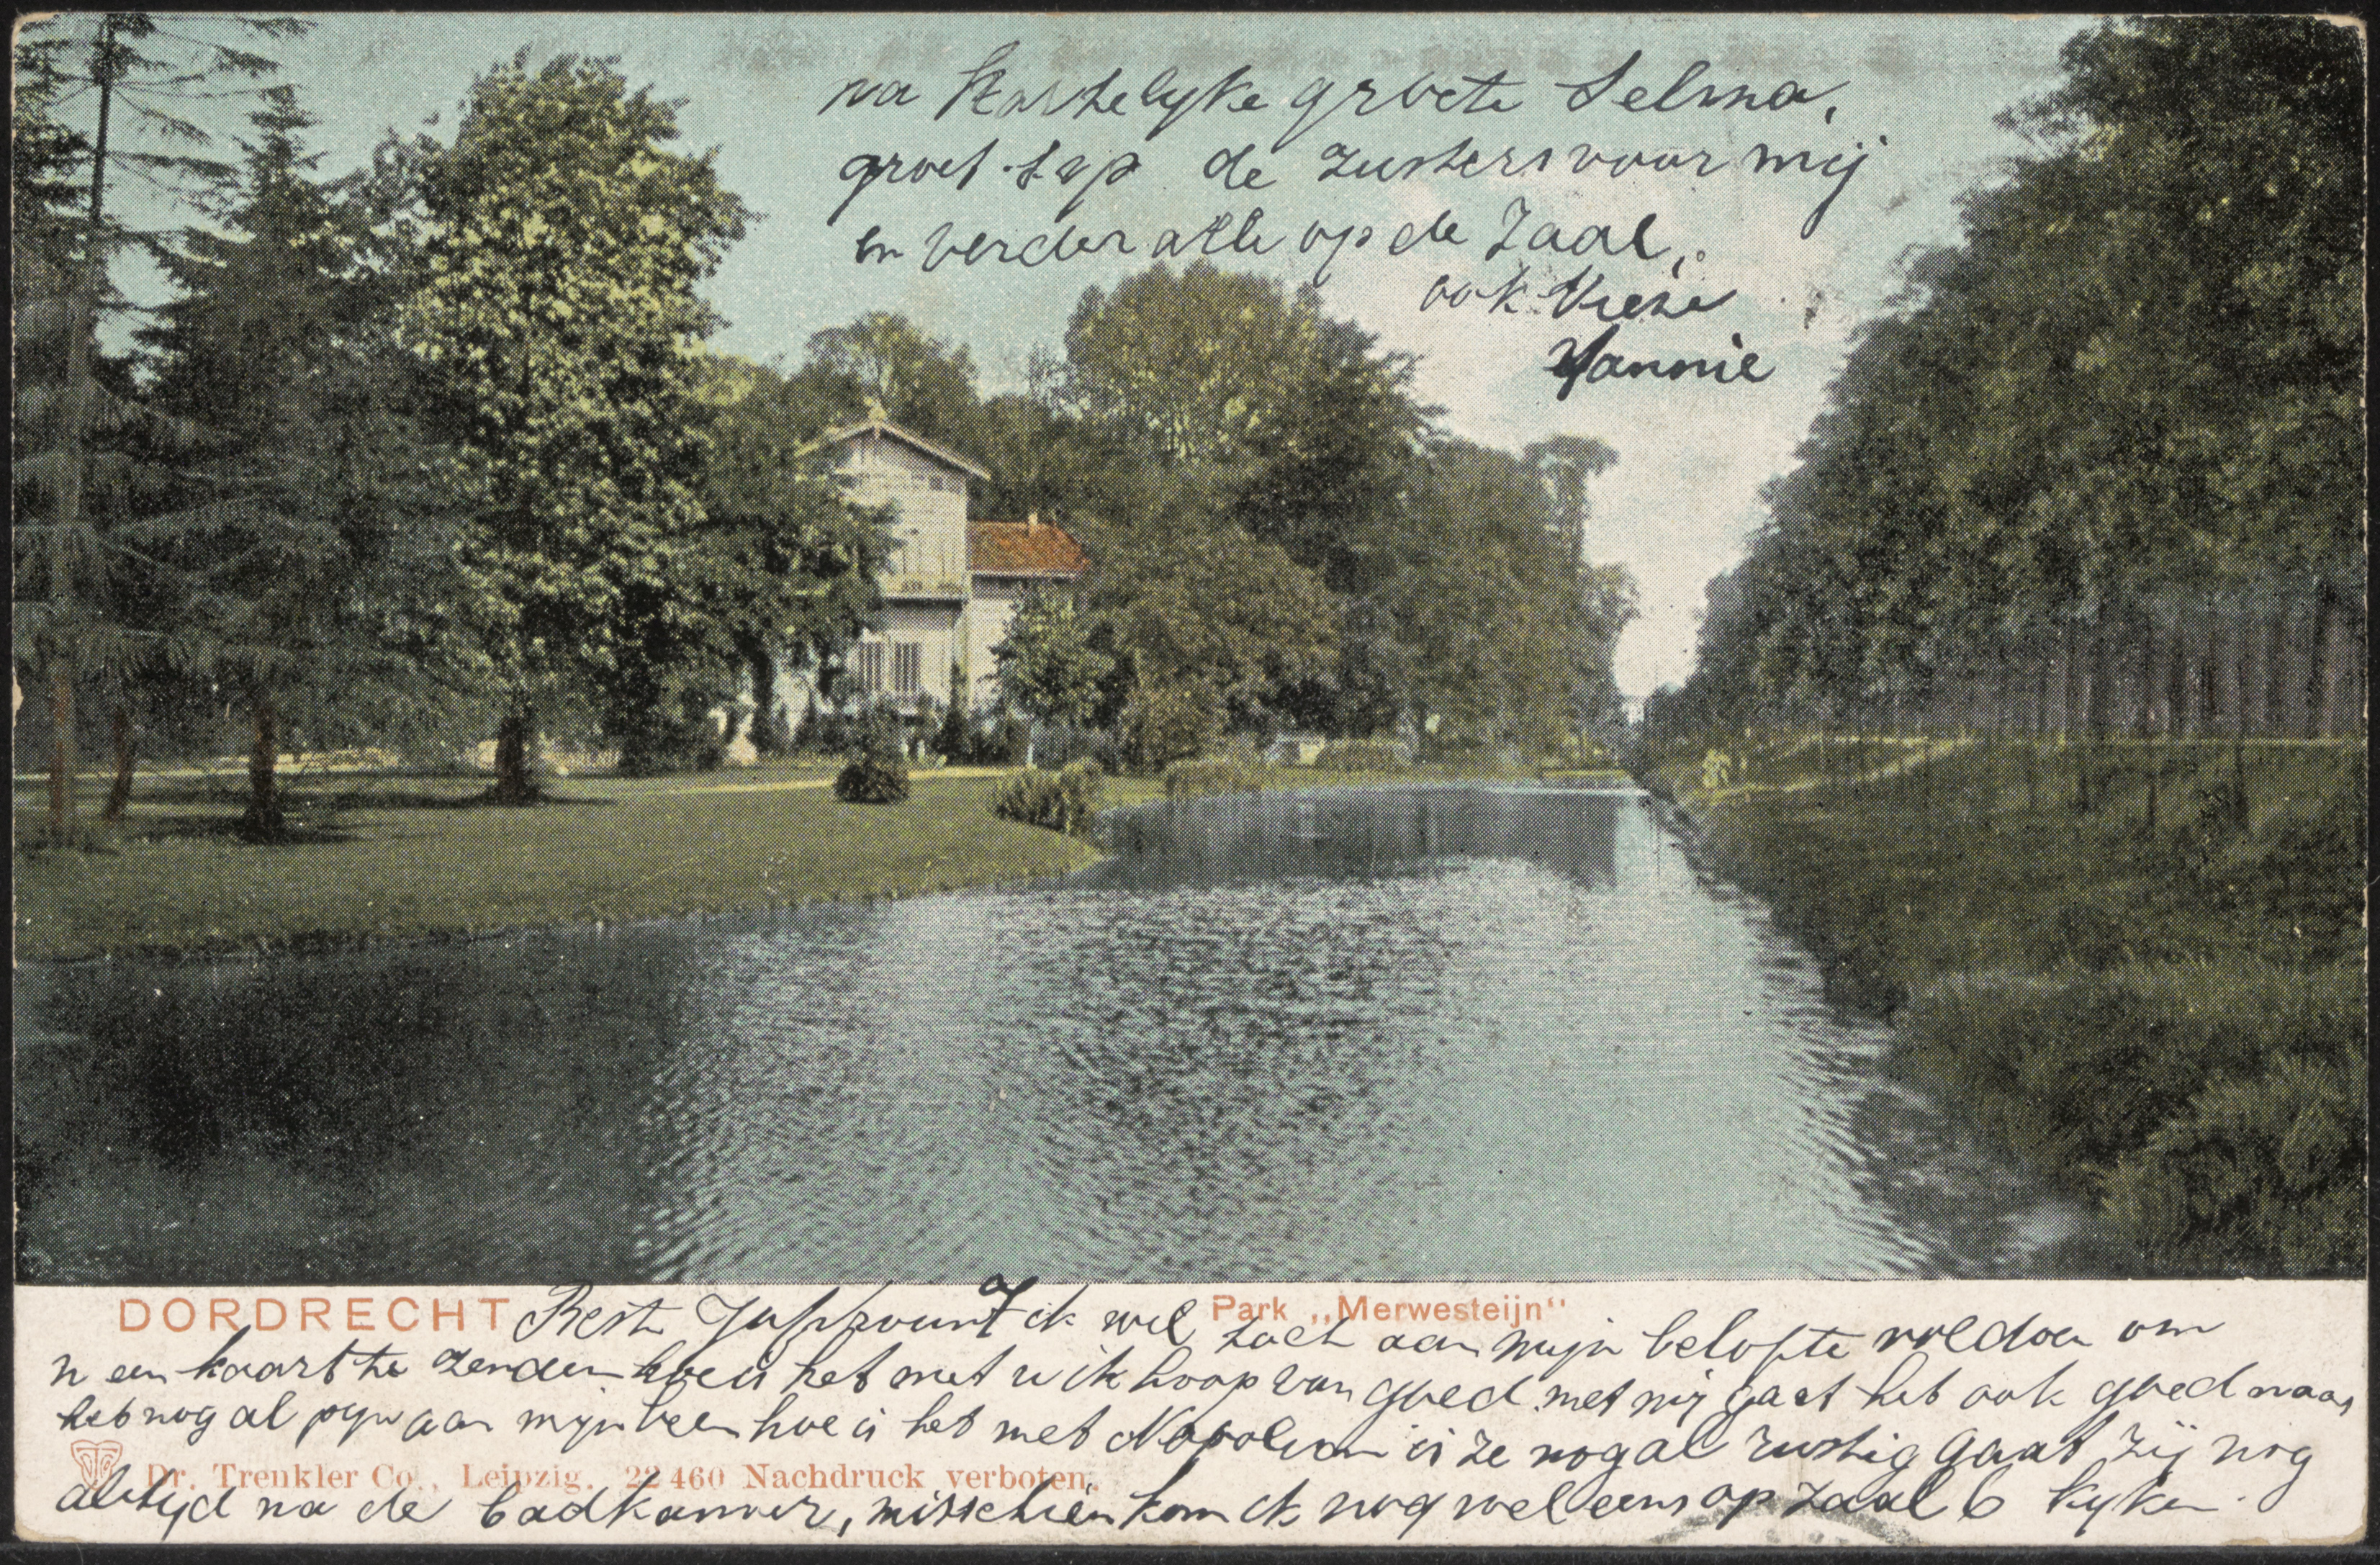 na Hartelyke groete Selma,
groet s.v.p. de zusters voor mij
en verder alle op de Zaal,
ook Uwe
Jannie
DORDRECHT
Park „Merwesteijn“
Beste Juffrouw ik wel toch aan mijn belofte voldoen om
u een kaart te zenden hoe is het met u ik hoop van goed met mij gaat het ook goed maar
heb nog al pijn aan mijn been hoe is het met Napoleon is ze nog al rustig gaat zij nog
Dr. Trenkler Co., Leipzig. 22460 Nachdruck verboten.
altyd na de badkamer, misschien kom ik nog wel eens op zaal 6 kyken.